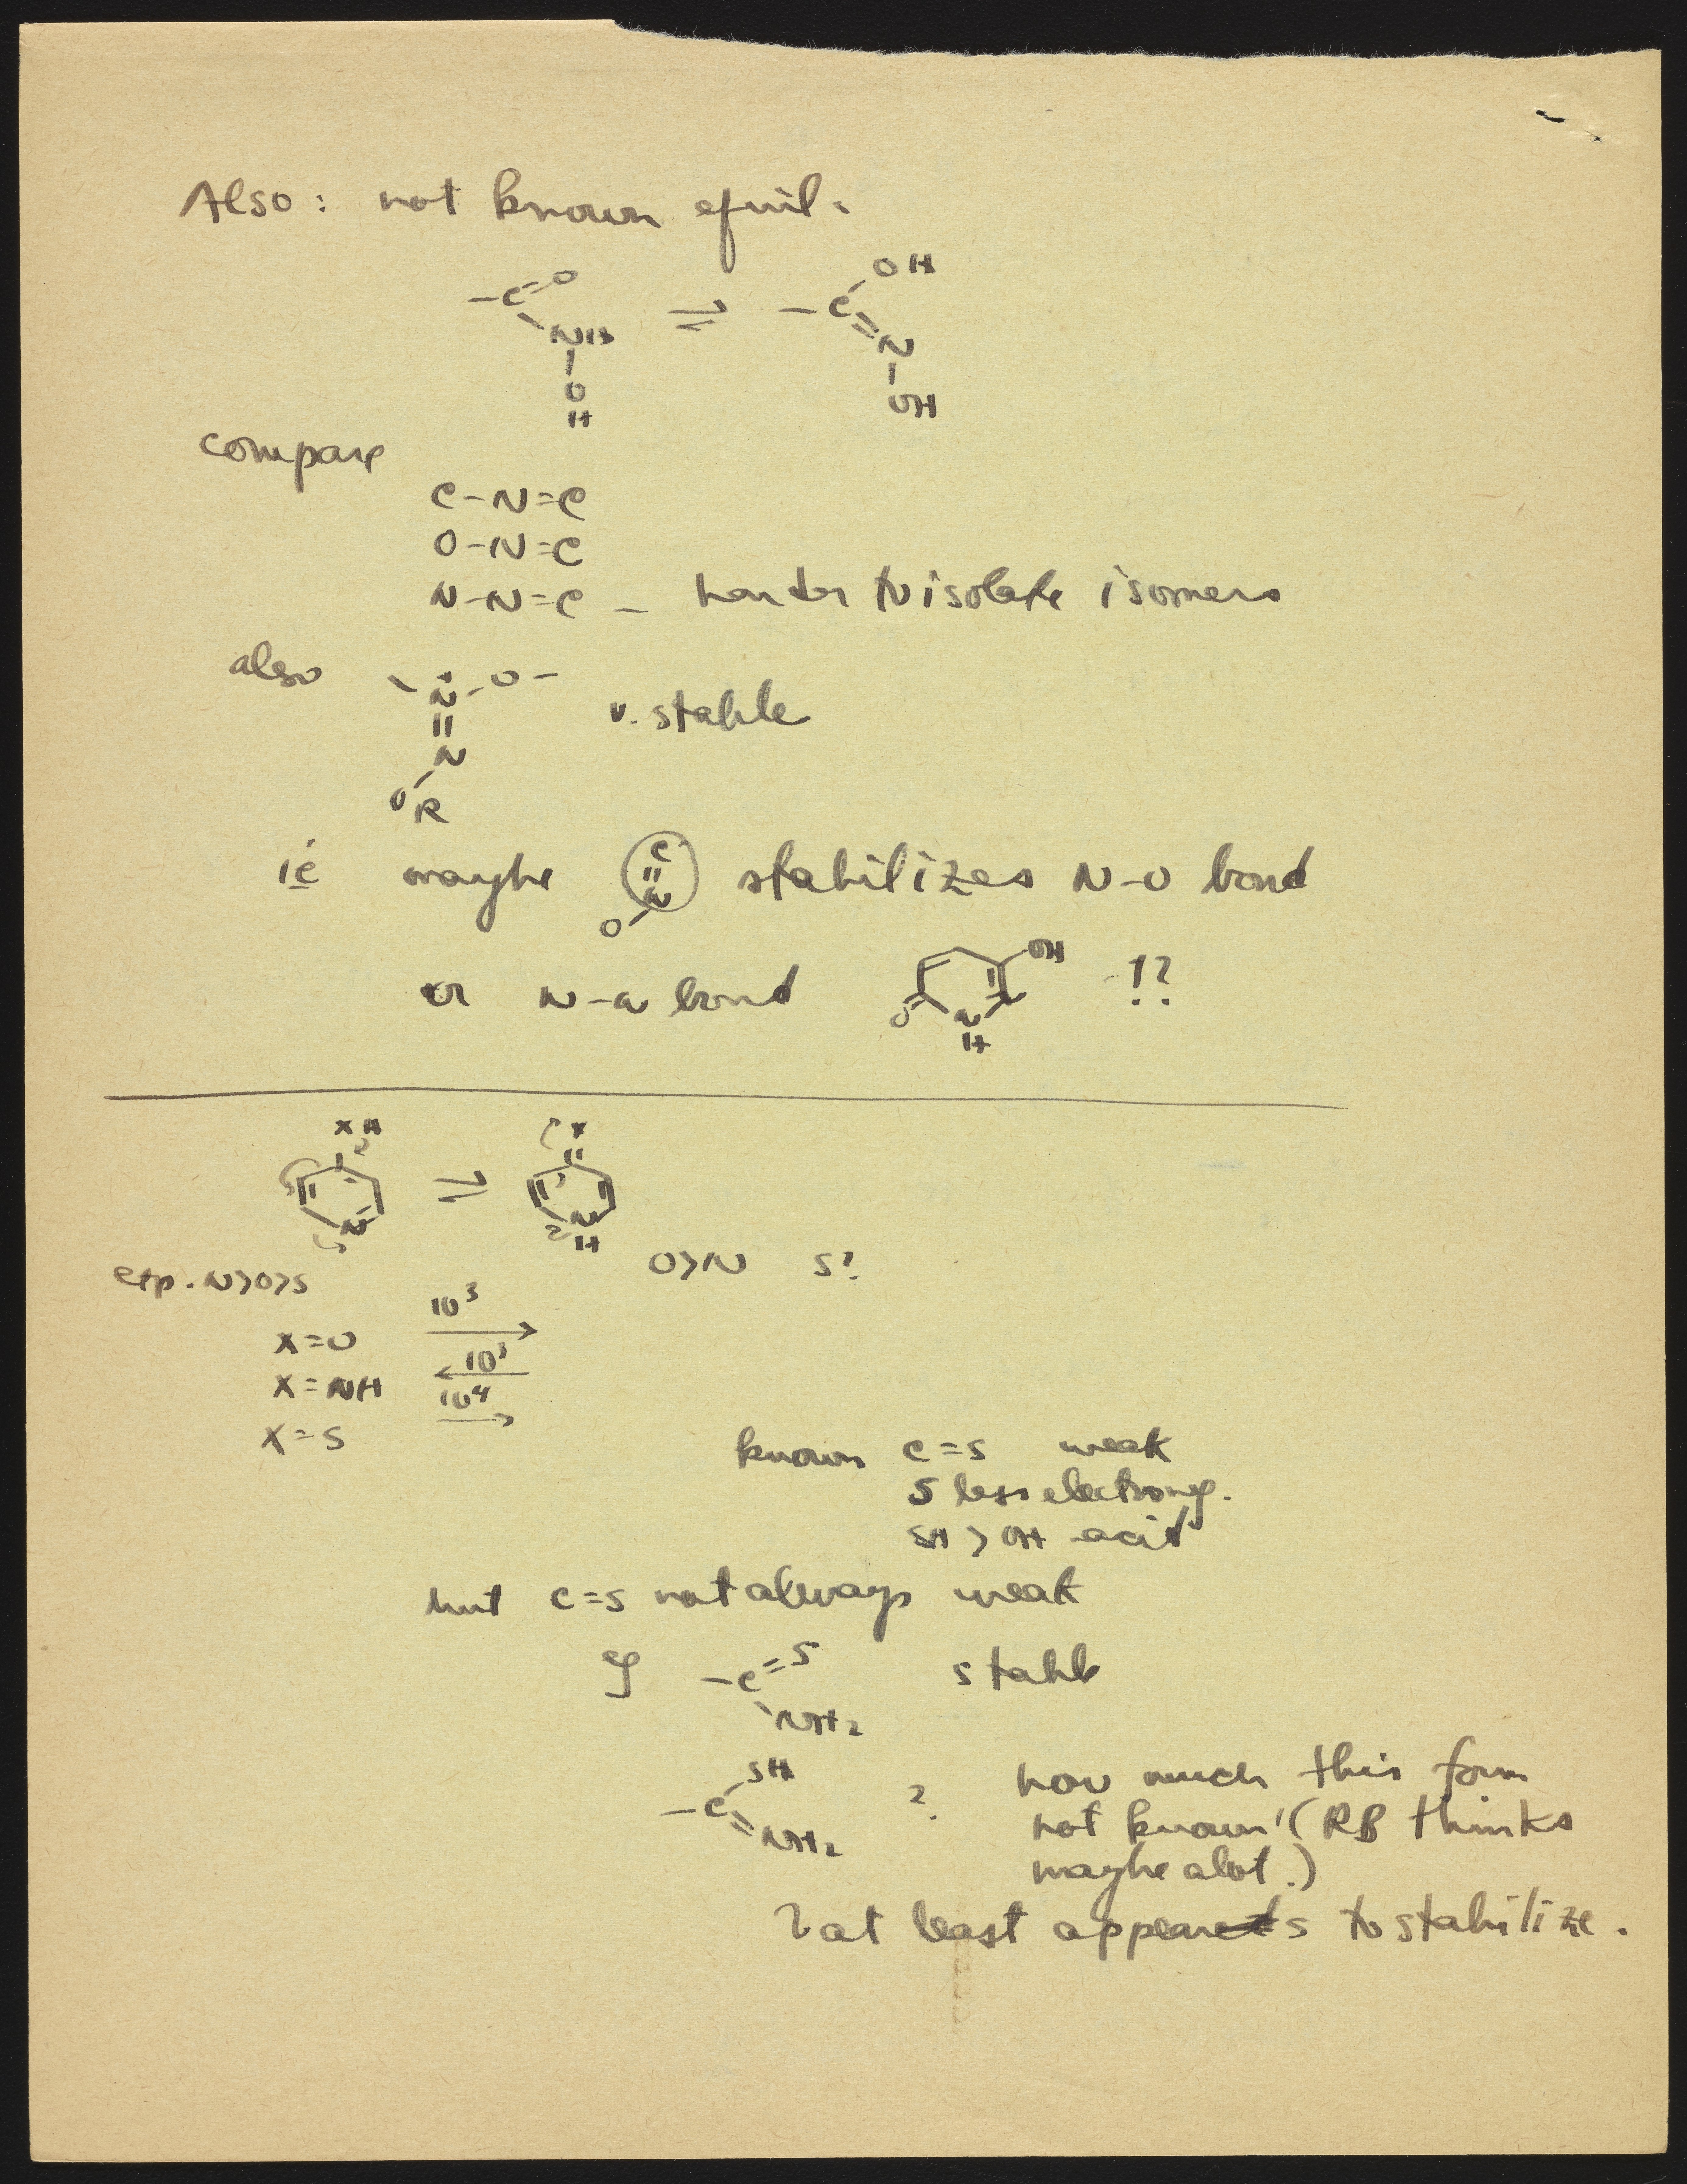 Also: not known equil.
-C=O NH O H ⇌ -C OH =N OH
compare
C-N=C
O-N=C
N-N=C - harder to isolate isomers
also -N-O- = N OR v. stable
ie maybe C=N O stabilizes N-O bond
or N-N bond O OH N N H !?
XH N ⇌ X N H
O>N S?
exp. N>O>S
X=O 10³ →
X=NH 10³ ←
X=S 10⁴ →
known C=S weak
S less electroneg.
SH > OH acid
but C=S not always weak
eg -C=S NH₂ stable
-C SH =NH₂ ? how much this form
not known! (RB thinks
maybe alot.)
? at least appears to stabilize.